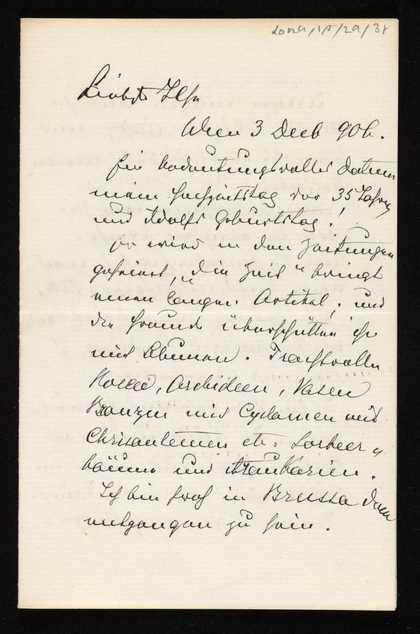 Liebste Ilse
Wien 3 Decb 906.
Ein bedeutungsvolles Datum
mein Hochzeitstag vor 35 Jahren
und Adolfs Geburtstag!
Er wird in den Zeitungen
gefeiert, "die Zeit" bringt
einen langen Artikel, und
die Freunde überschütten ihn
mit Blumen. Prachtvolle
Orchideen, Vasen
mit Cyclamen und
Chrisantemen etc. Lorbeer„
bäume und Araukarien.
Ich bin froh in Brussa dem
entgangen zu sein.